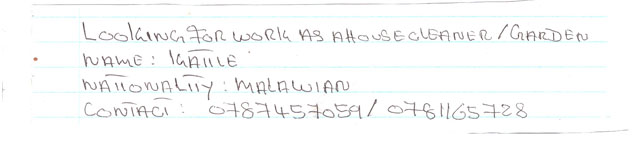 LOOKING FOR WORK AS A HOUSECLEANER / GARDEN
NAME : KATIIE
NATIONALITY : MALAWIAN
CONTACT : 0787457059 / 0781165728